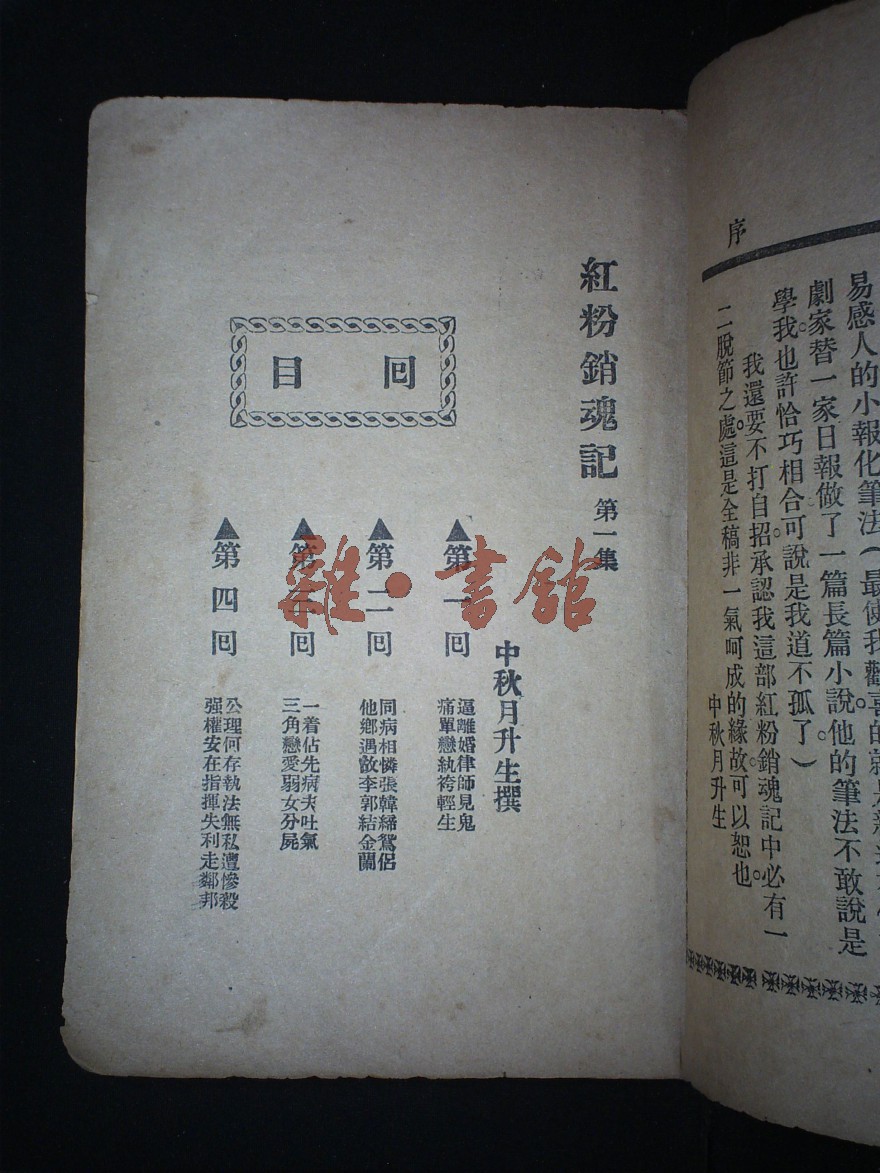 序
易感人的小報化筆法(最使我歡喜的就是
劇家替一家日報做了一篇長篇小說。他的筆法不敢說是
學我。也許恰巧相合。可說是我道不孤了)
我還要不打自招。承認我這部紅粉銷魂記中。必有一
二脫節之處。這是全稿非一氣呵成的緣故。可以恕也。
中秋月升生
紅粉銷魂記 第一集
中秋月升生撰
回目
▲第一回
逼離婚律師見鬼
痛單戀紈袴輕生
▲第二回
同病相憐張韓締鴛侶
他鄉遇敵李郭結金蘭
▲第三回
一着佔先病夫吐氣
三角戀愛弱女分屍
▲第四回
公理何存執法無私遭慘殺
强權安在指揮失利走鄰邦
雜·書館